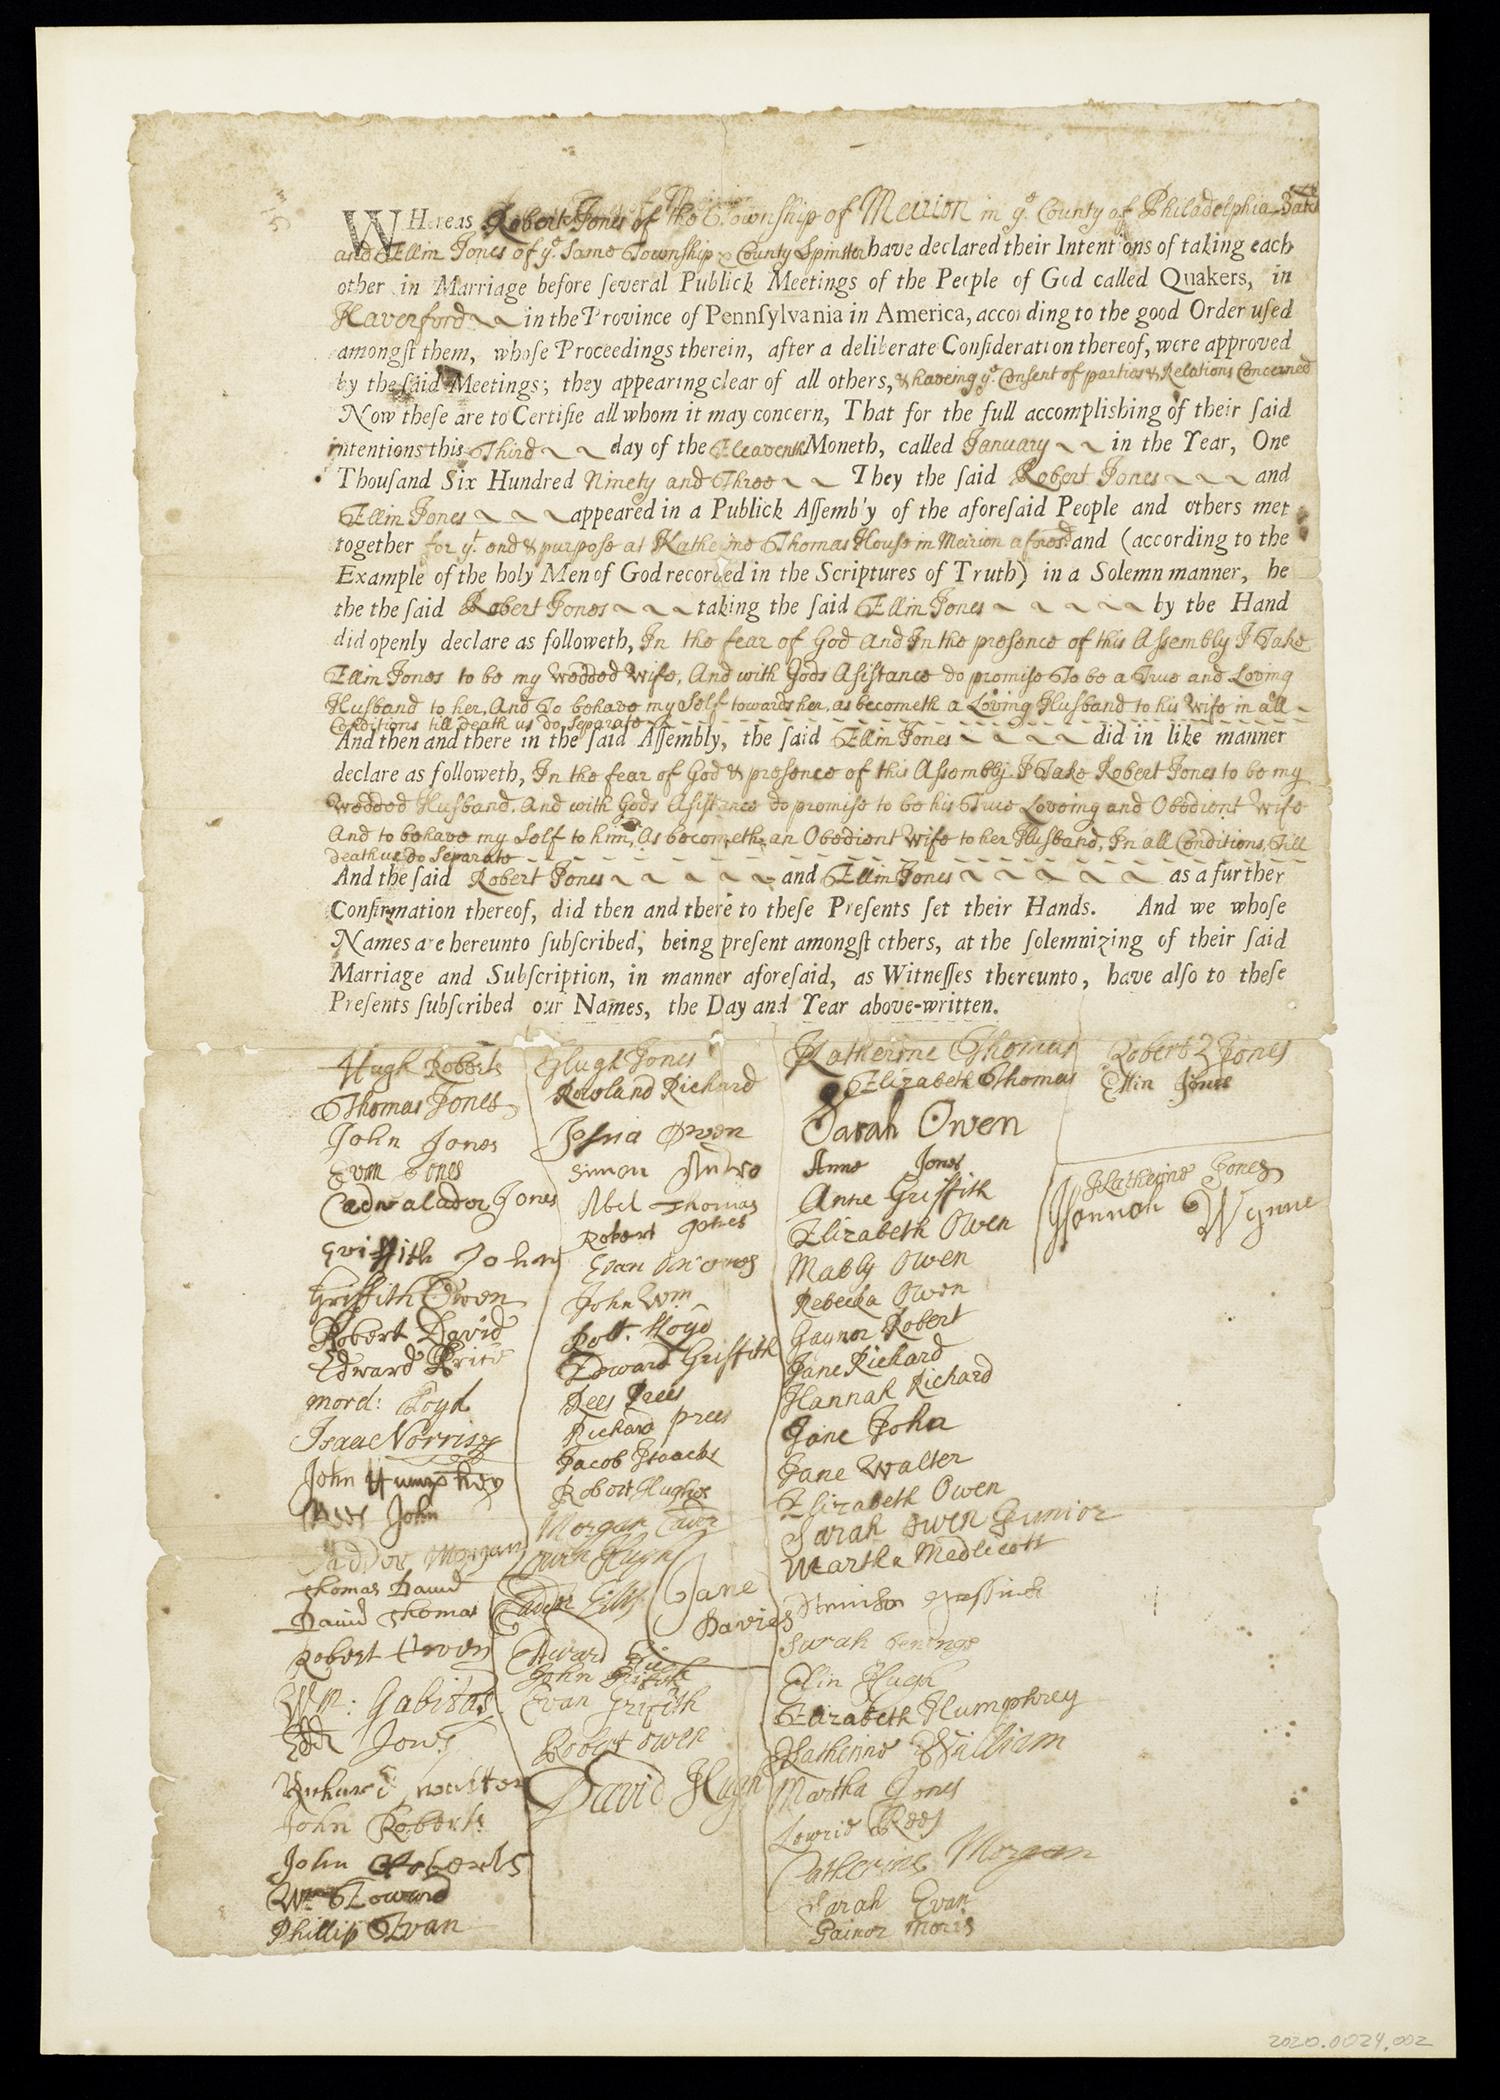 WHereas Robert Jones of the Township of Meirion in yᵉ County of Philadelphia
and Ellin Jones of yᵉ same Township & County Spinster have declared their Intentions of taking each
other in Marriage before ſeveral Publick Meetings of the People of God called Quakers, in
Haverford in the Province of Pennſylvania in America, according to the good Order uſed
amongſt them, whoſe Proceedings therein, after a deliberate Conſideration thereof, were approved
by the ſaid Meetings; they appearing clear of all others, & haveing yᵉ Conſent of parties & Relations Concerned
Now theſe are to Certifie all whom it may concern, That for the full accompliſhing of their ſaid
intentions this Third day of the Eleaventh Moneth, called January in the Year, One
Thouſand Six Hundred Ninety and Three They the ſaid Robert Jones and
Ellin Jones appeared in a Publick Aſſembly of the aforeſaid People and others met
together for yᵗ end & purpoſe at Katherine Thomas Houſe in Meirion aforesᵈ and (according to the
Example of the holy Men of God recorded in the Scriptures of Truth) in a Solemn manner, he
the the ſaid Robert Jones taking the ſaid Ellin Jones by the Hand
did openly declare as followeth, In the fear of God And In the presence of this Aſſembly I Take
Ellin Jones to be my wedded wife, And with Gods Aſiſtance do promiſe To be a True and Loving
Huſband to her, And To behave my Self towards her, as becometh a Loving Huſband to his Wife in all
Conditions till death us do Separate
And then and there in the ſaid Aſſembly, the ſaid Ellin Jones did in like manner
declare as followeth, In the fear of God & presence of this Aſſembly I Take Robert Jones to be my
wedded Huſband, And with Gods Aſiſtance do promiſe to be his True Loveing and Obedient Wife
And to behave my Self to him, As becometh an Obedient Wife to her Huſband, In all Conditions, Till
death us do Separate
And the ſaid Robert Jones and Ellin Jones as a further
Confirmation thereof, did then and there to theſe Preſents ſet their Hands. And we whoſe
Names are hereunto ſubſcribed, being preſent amongſt others, at the ſolemnizing of their ſaid
Marriage and Subſcription, in manner aforeſaid, as Witneſſes thereunto, have alſo to theſe
Preſents ſubſcribed our Names, the Day and Year above-written.
Hugh Roberts
Thomas Jones
John Jones
Evan Jones
Cadwalader Jones
Griffith John
Griffith Owen
Robert David
Edward Price
mord: Lloyd
Isaac Norris
John Humphrey
Rees John
Morgan
Thomas David
David Thomas
Robert Owen
Wm: Gabitas
Edd Jones
Richard walter
John Roberts
John Roberts
Wm Howard
Phillip Evan
Hugh Jones
Rowland Richard
Joshua Owen
Simon
Abel Thomas
Robert Jones
Evan
John Wm
Robt. Lloyd
Edward Griffith
Rees Prees
Richard prees
Jacob Isaacks
Robert Hughes
Morgan
Hugh
Cadder Ellis
Jane
Davies
Edward
John Griffith
Evan Griffith
Robert Owen
David Hugh
Katherine Thomas
Elizabeth Thomas
Sarah Owen
Anne Jones
Anne Griffith
Elizabeth Owen
Mably Owen
Rebecka Owen
Gaynor Robert
Jane Richard
Hannah Richard
Jane John
Jane Walter
Elizabeth Owen
Sarah Owen Junior
Martha Medlicott
Sarah
Elin Hugh
Elizabeth Humphrey
Katherine William
Martha Jones
Lowrie Rees
Catherine Morgan
Sarah Evan
Gainor Moris
Robert Jones
Ellin Jones
Katherine Jones
Hannah Wynne
2020.0024.002